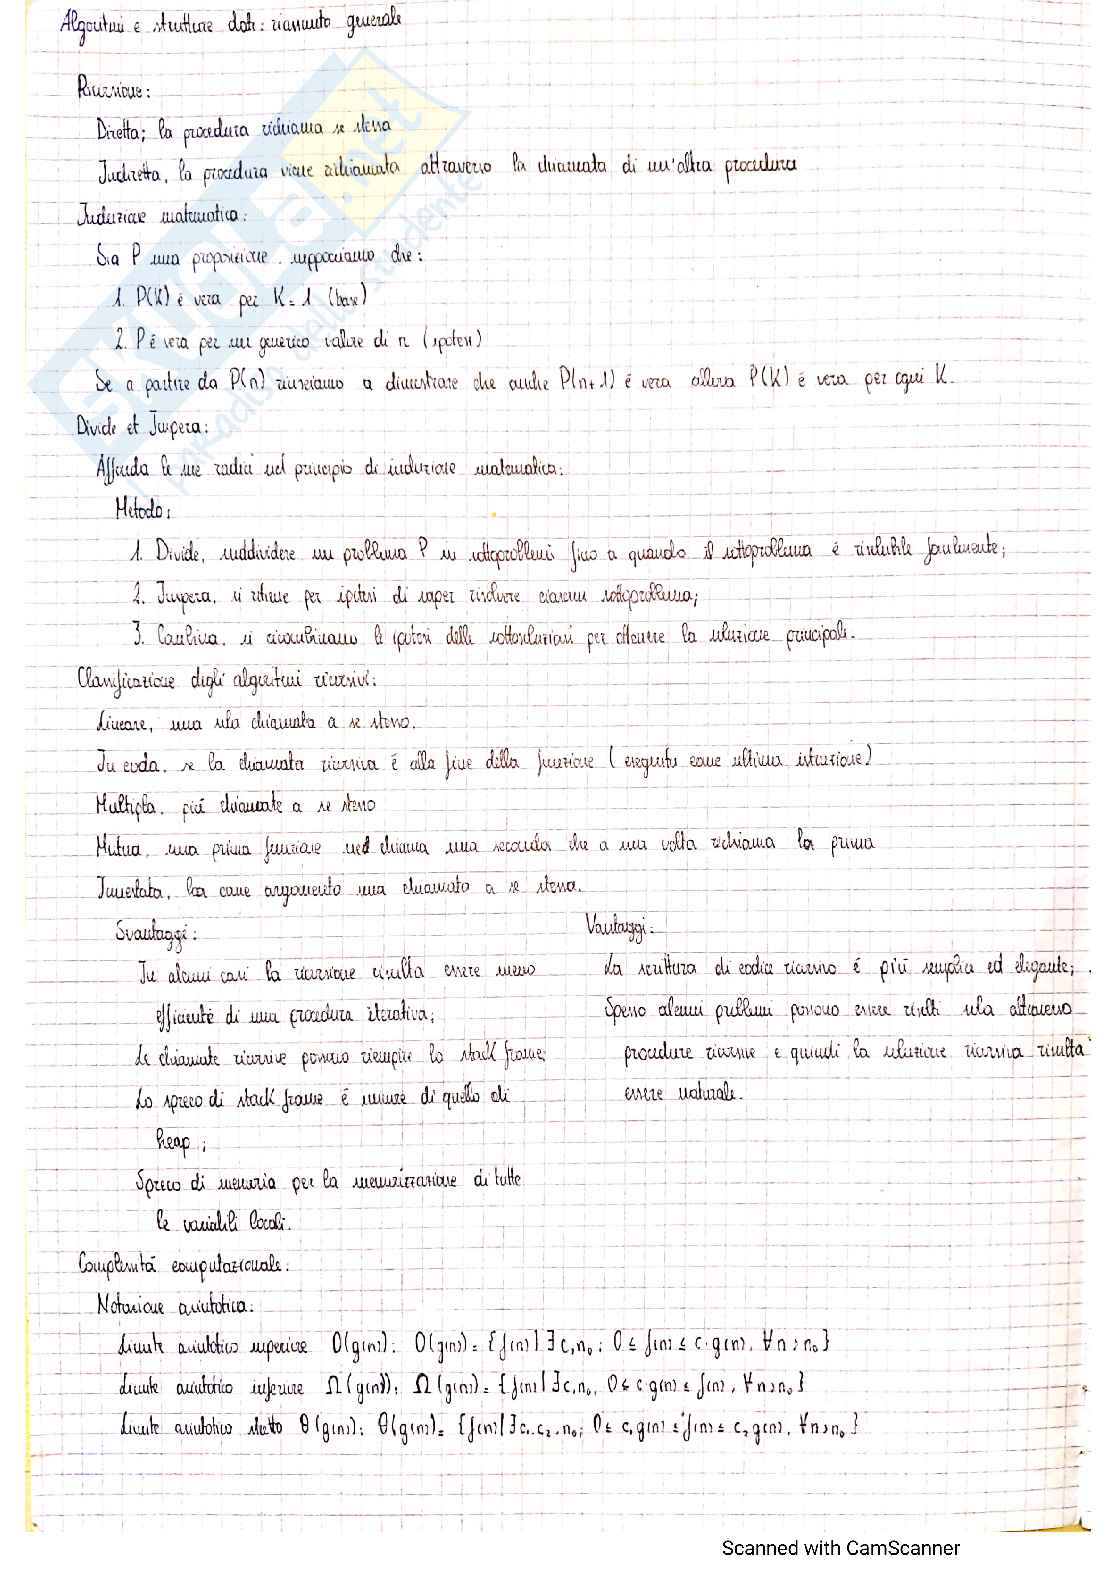 Algoritmi e strutture dati: riassunto generale
Ricorsione:
Diretta; la procedura richiama se stessa
Indiretta, la procedura viene richiamata attraverso la chiamata di un'altra procedura
Induzione matematica:
Sia P una proposizione, supponiamo che:
1. P(K) é vera per K=1 (base)
2. P é vera per un generico valore di n (ipotesi)
Se a partire da P(n) riusciamo a dimostrare che anche P(n+1) é vera allora P(K) é vera per ogni K.
Divide et Impera:
Affonda le sue radici nel principio di induzione matematica:
Metodo:
1. Divide, suddividere un problema P in sottoproblemi fino a quando il sottoproblema é risolubile facilmente;
2. Impera, si ritiene per ipotesi di saper risolvere ciascun sottoproblema;
3. Combina, si ricombinano le ipotesi delle sottosoluzioni per ottenere la soluzione principali.
Classificazione degli algoritmi ricorsivi:
Lineare, una sola chiamata a se stesso.
In coda, se la chiamata ricorsiva é alla fine della funzione (eseguita come ultima istruzione)
Multipla, più chiamate a se stesso
Mutua, una prima funzione chiama una seconda che a sua volta richiama la prima
Innestata, ha come argomento una chiamata a se stessa.
Svantaggi:
In alcuni casi la ricorsione risulta essere meno
efficiente di una procedura iterativa;
Le chiamate ricorsive possono riempire lo stack frame;
Lo spreco di stack frame é minore di quello di
heap;
Spreco di memoria per la memorizzazione di tutte
le variabili locali.
Vantaggi:
La scrittura di codice ricorsivo é più semplice ed elegante;
Spesso alcuni problemi possono essere risolti solo attraverso
procedure ricorsive e quindi la soluzione ricorsiva risulta
essere naturale.
Complessità computazionale:
Notazione asintotica:
Limite asintotico superiore O(g(n)): O(g(n)) = {f(n) | ∃ c, n₀ ; 0 ≤ f(n) ≤ c·g(n), ∀n > n₀}
Limite asintotico inferiore Ω(g(n)): Ω(g(n)) = {f(n) | ∃ c, n₀, 0 ≤ c g(n) ≤ f(n), ∀n > n₀}
Limite asintotico stretto θ(g(n)): θ(g(n)) = {f(n) | ∃ c₁, c₂, n₀; 0 ≤ c₁ g(n) ≤ f(n) ≤ c₂ g(n), ∀n > n₀}
SKUOLA.net
il paradiso dello studente
Scanned with CamScanner